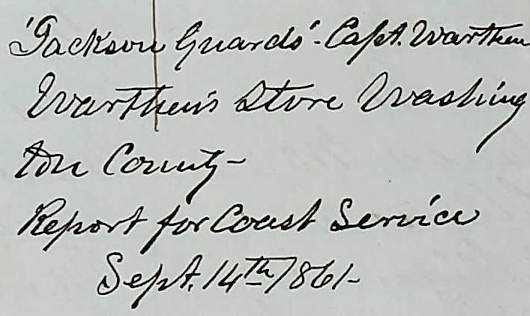 "Jackson Guards"- Capt. Warthen
Warthen's Store Washing
ton County-
Report for Coast Service
Sept. 14th 1861-